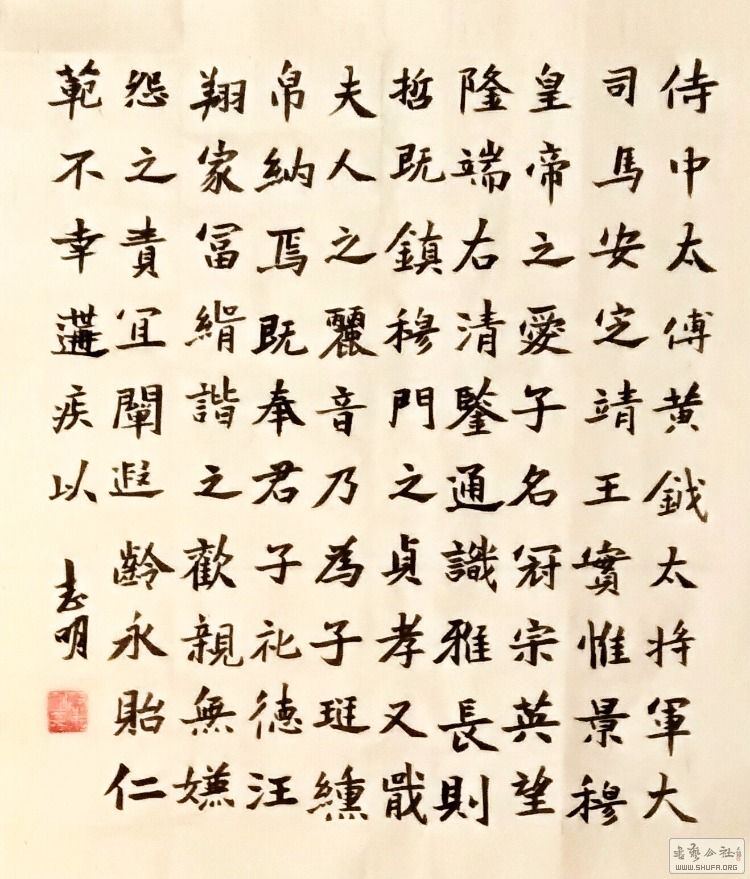 侍中太傅黄鉞太将軍大
司馬安定靖王實惟景穆
皇帝之愛子名冠宗英望
隆端右清鑒通識雅長則
哲既鎮穆門之貞孝又戩
夫人之麗音乃為子珽纁
帛納焉既奉君子礼德汪
翔家冨緝諧之歡親無嫌
怨之責宜闡遐齡永貽仁
範不幸遘疾以
志明
書藝公社
WWW.SHUFA.ORG